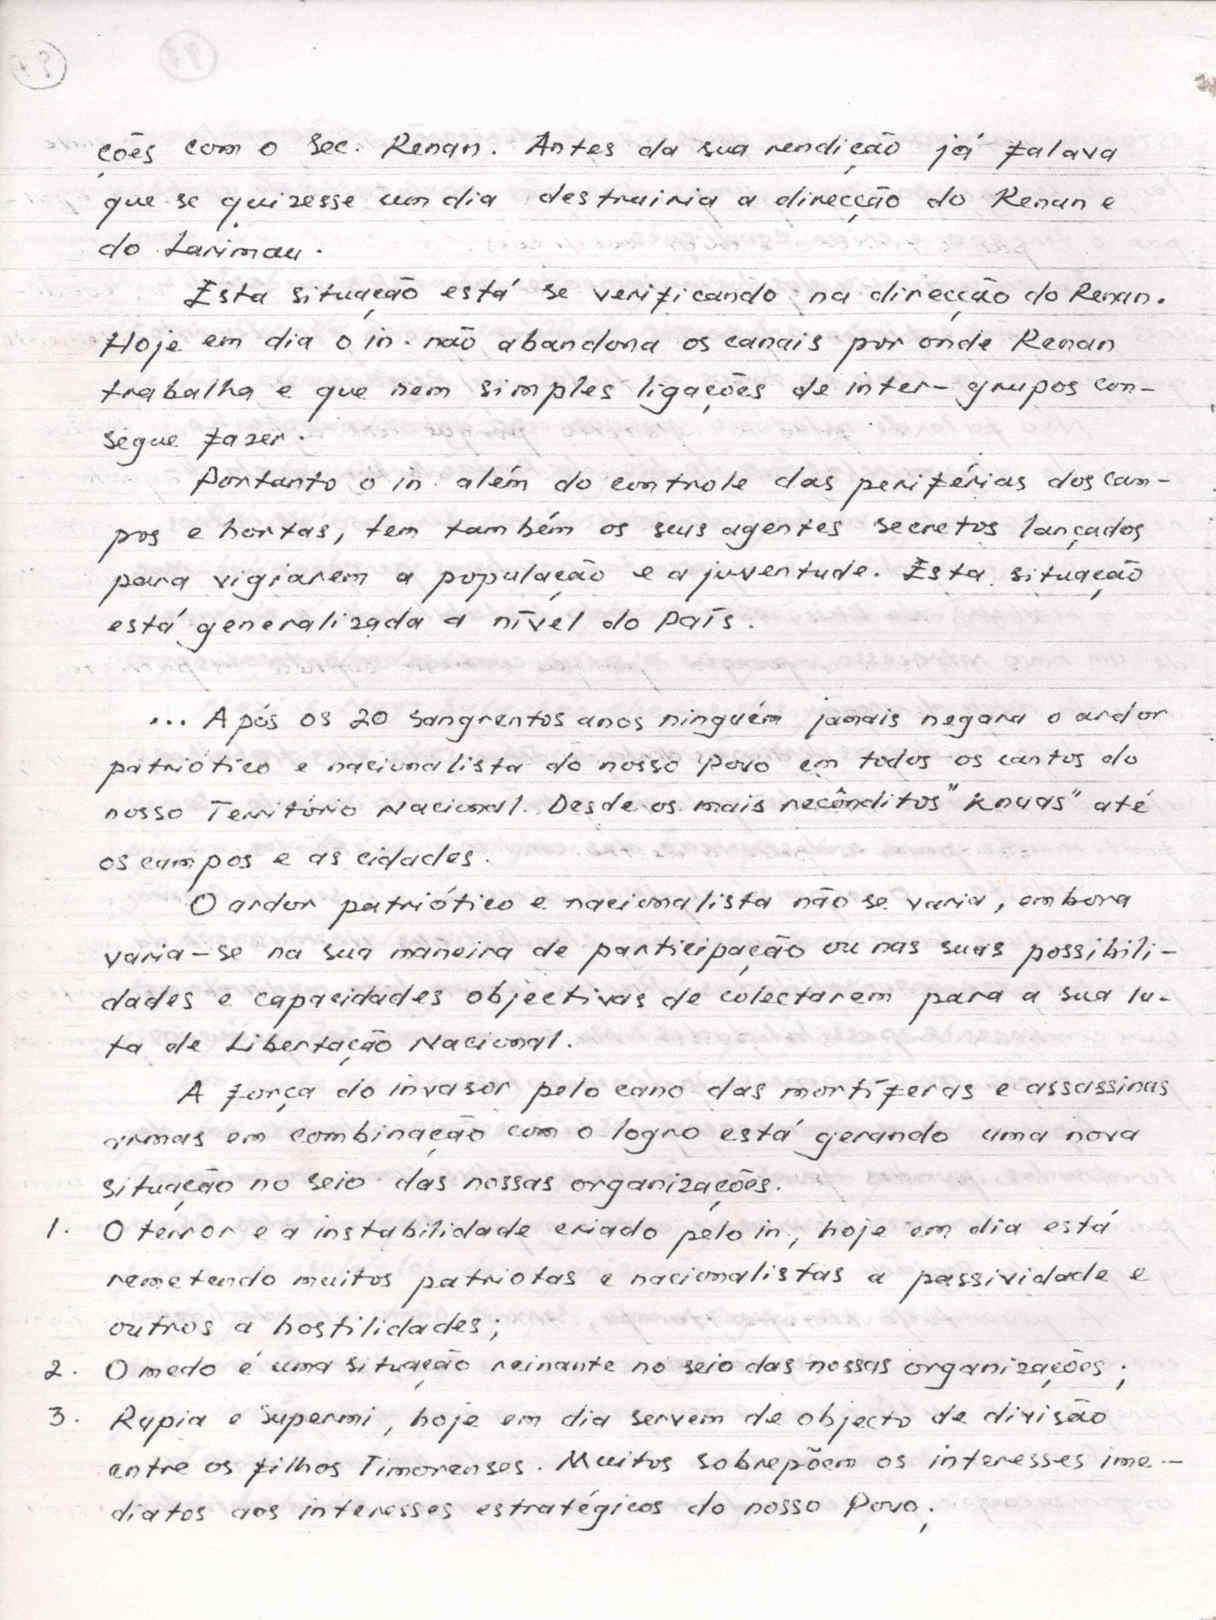 ções com o Sec. Renan. Antes da sua rendição já falava
que se quizesse um dia destruiria a direcção do Renan e
do Larimau.
Esta situação está se verificando na direcção do Renan.
Hoje em dia o in. não abandona os canais por onde Renan
trabalha e que nem simples ligações de inter-grupos con-
segue fazer.
Portanto o in. além do controle das periférias dos cam-
pos e hortas, tem também os seus agentes secretos lançados
para vigiarem a população e a juventude. Esta situação
está generalizada a nível do País.
... Após os 20 sangrentos anos ninguém jamais negara o ardor
patriótico e nacionalista do nosso Povo em todos os cantos do
nosso Território Nacional. Desde os mais recônditos "knuas" até
os campos e as cidades.
O ardor patriótico e nacionalista não se varia, embora
varia-se na sua maneira de participação ou nas suas possibili-
dades e capacidades objectivas de colectarem para a sua lu-
ta de Libertação Nacional.
A força do invasor pelo cano das mortíferas e assassinas
armas em combinação com o logro está gerando uma nova
situação no seio das nossas organizações.
1. O terror e a instabilidade criado pelo in, hoje em dia está
remetendo muitos patriotas e nacionalistas a passividade e
outros a hostilidades;
2. O medo é uma situação reinante no seio das nossas organizações;
3. Rupia e Supermi, hoje em dia servem de objecto de divisão
entre os filhos Timorenses. Muitos sobrepõem os interesses ime-
diatos aos interesses estratégicos do nosso Povo;